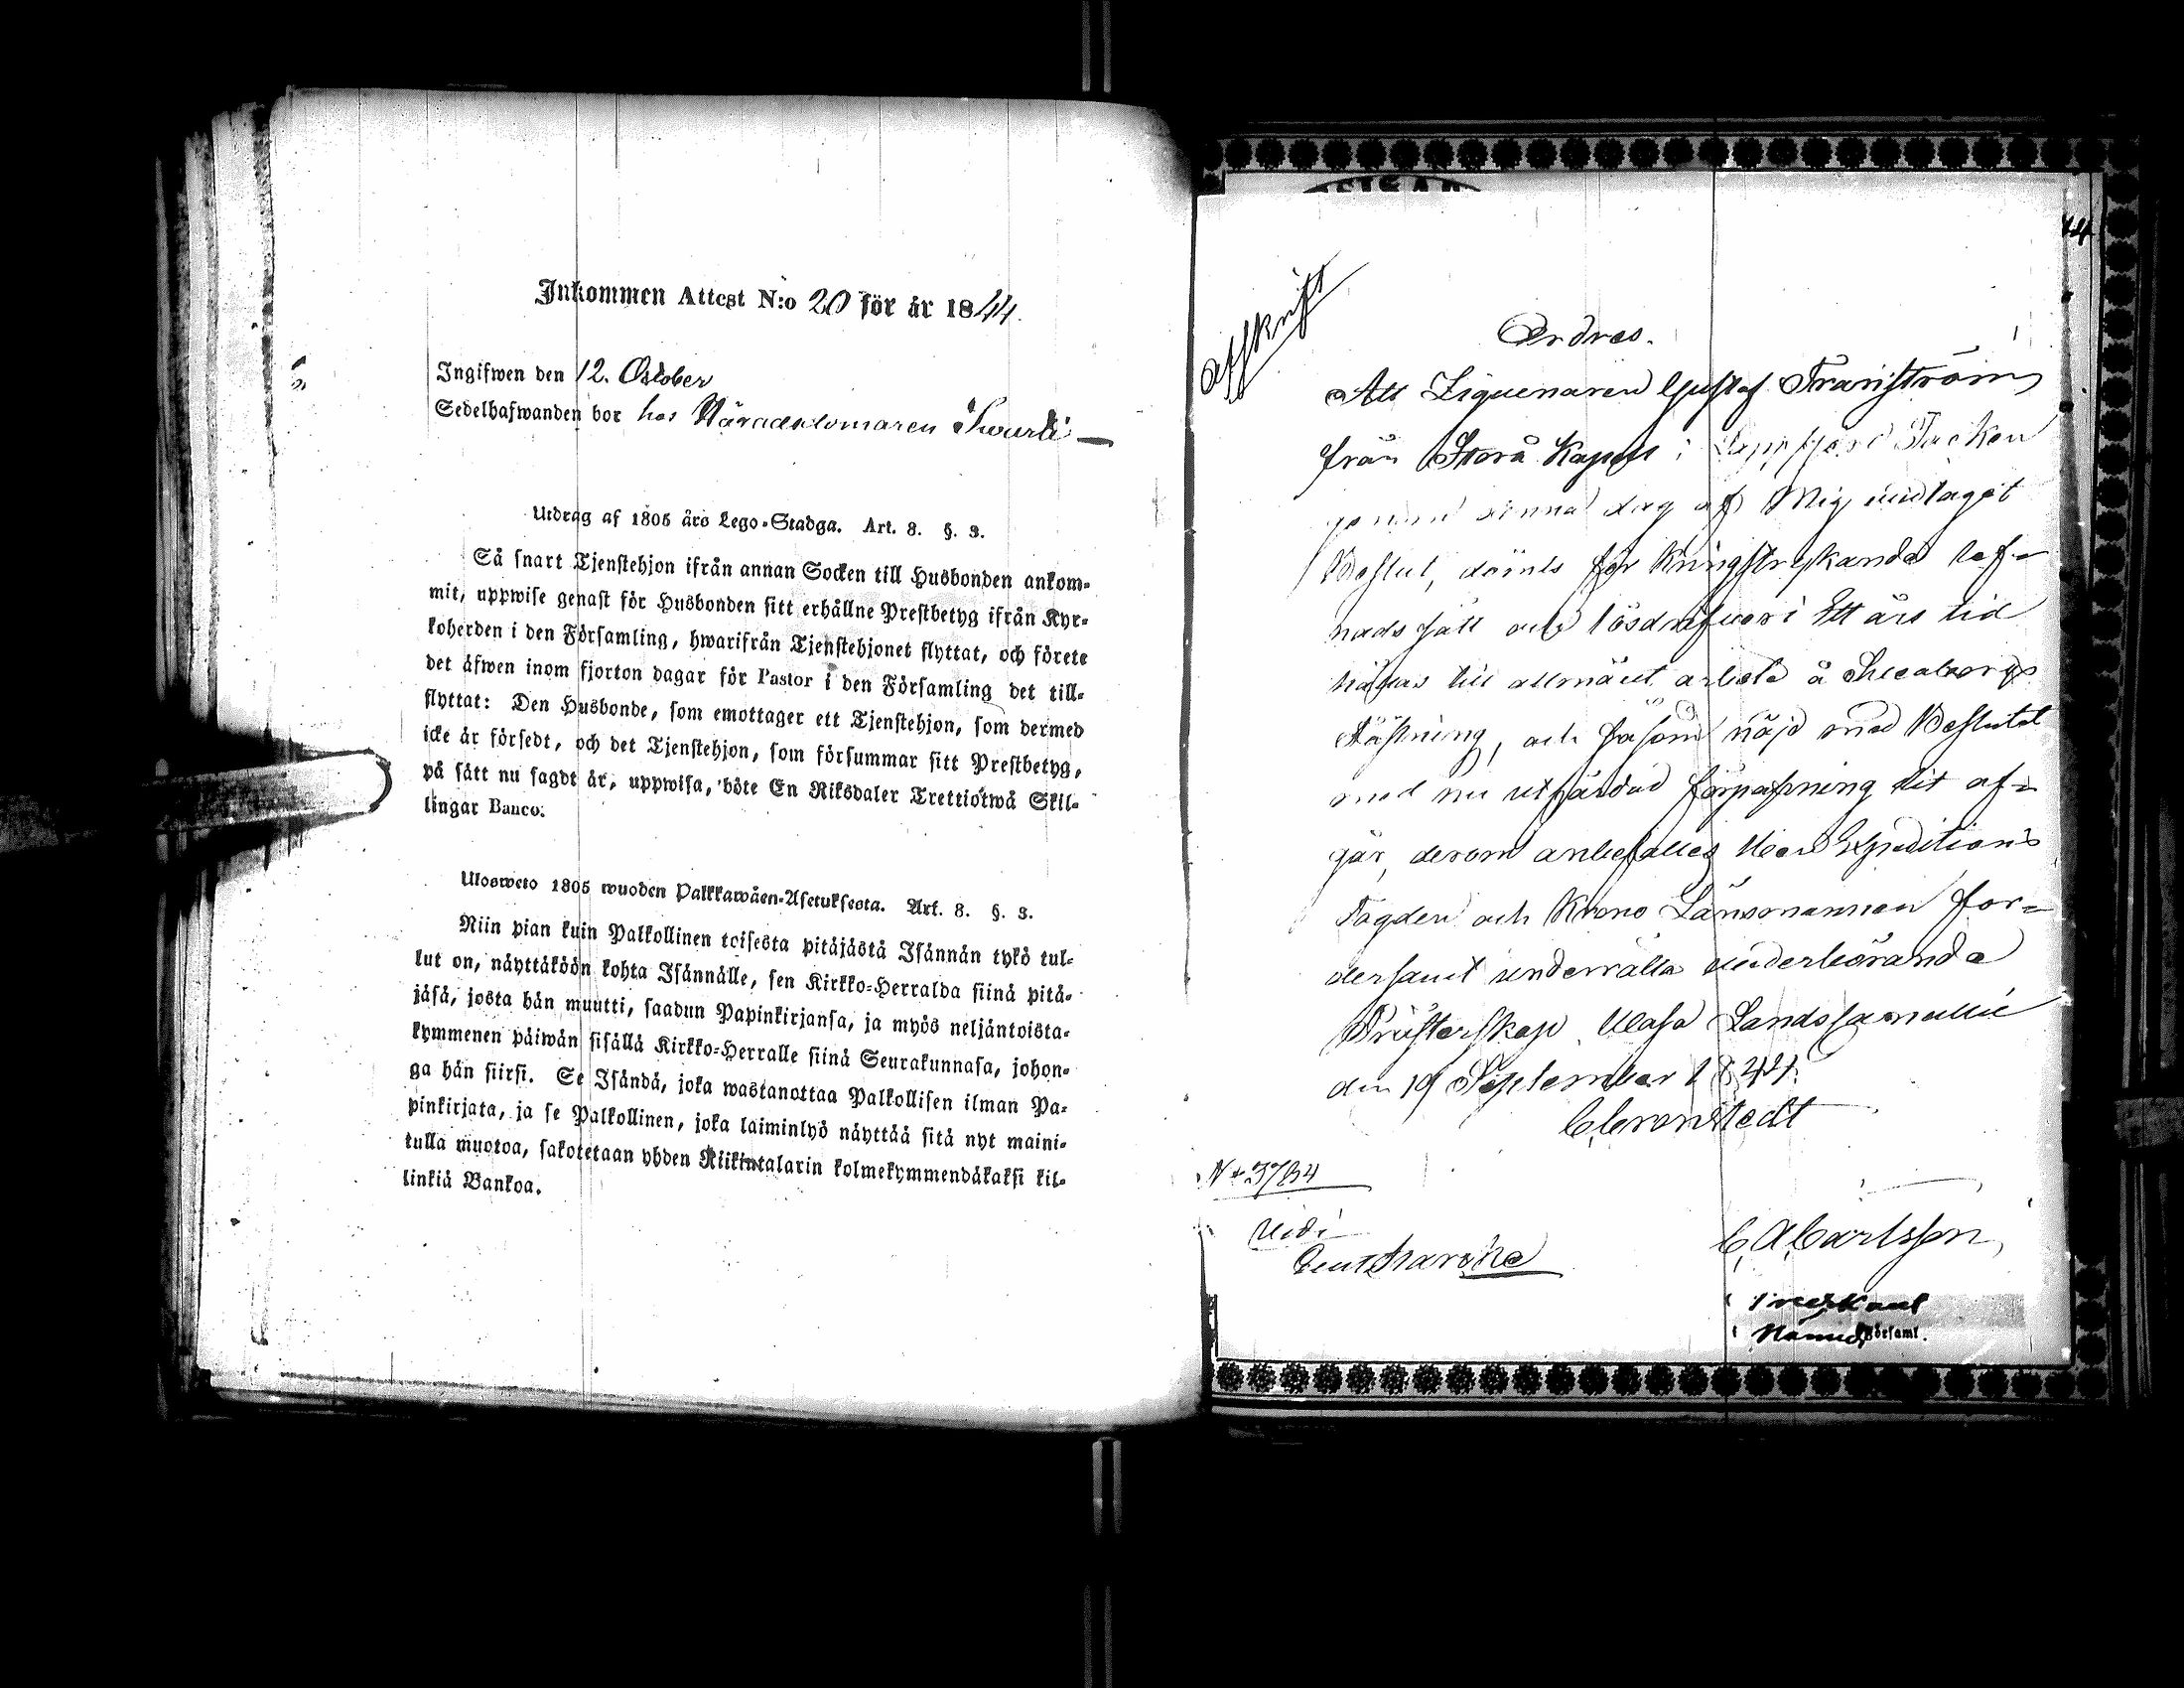 Inkommen Attest N:o 20 för år 1844.
Ingifwen den 12. October
Sedelhafwanden bor hos Häradsdomaren
Utdrag af 1805 års Lego-Stadga. Art. 8. §. 3.
Så snart Tjenstehjon ifrån annan Socken till Husbonden ankom-
mit, uppwise genast för Husbonden sitt erhållne Prestbetyg ifrån Kyr-
koherden i den Församling, hwarifrån Tjenstehjonet flyttat, och förete
det äfwen inom fjorton dagar för Pastor i den Församling det till-
flyttat: Den Husbonde, som emottager ett Tjenstehjon, som dermed
icke är försedt, och det Tjenstehjon, som försummar sitt Prestbetyg,
på sätt nu sagdt är, uppwisa, böte En Riksdaler Trettiotwå Skil-
lingar Banco.
Ulosweto 1805 wuoden Palkkawäen-Asetuksesta. Art. 8. §. 3.
Niin pian kuin Palkollinen toisesta pitäjästä Isännän tykö tul-
lut on, näyttäköön kohta Isännälle, sen Kirkko-Herralda siinä pitä-
jäsä, josta hän muutti, saadun Papinkirjansa, ja myös neljäntoista-
kymmenen päiwän sisällä Kirkko-Herralle siinä Seurakunnasa, johon-
ga hän siirsi. Se Isändä, joka wastanottaa Palkollisen ilman Pa-
pinkirjata, ja se Palkollinen, joka laiminlyö näyttää sitä nyt maini-
tulla muotoa, sakotetaan yhden Riikintalarin kolmekymmendäkaksi kil-
linkiä Bankoa.
Afskrift
Ordres.
Att Ziguenaren Gustaf Franström
från Storå Kapell i Lappfjerd Socken
genom denna dag af Mig meddelagt
Beslut, dömts för kringstrykande lef-
nads sätt och lösdrifveri Ett års tid
hållas till allmänt arbete å Sveaborgs
Fästning, och såsom nöjd med Beslutet
med nu utfärdad förpassning dit af-
går, derom anbefalles Herr Expeditions
Fogden och Krono Länsmannen for-
dersamt underrätta vederbörande
Prästerskap. Wasa Landskansellie
den 19 September 1844.
C. Cronstedt
N:o 3784
Vidi
C A Carlsson,